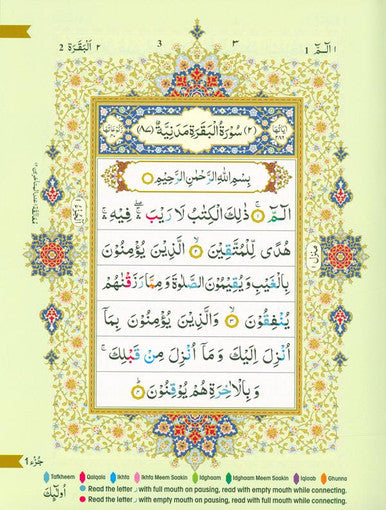 ١ الٓمّٓ 1
٣ 3
٢ اَلْبَقَرَة 2
(٢) سُوْرَةُ الْبَقَرَةِ مَدَنِيَّةٌ (٨٧)
بِسْمِ اللّٰهِ الرَّحْمٰنِ الرَّحِيْمِ
الٓمّٓ ۚ ١ ذٰلِكَ الْكِتٰبُ لَا رَيْبَ ۛۖ فِيْهِ ۛۚ
هُدًى لِّلْمُتَّقِيْنَ ۙ ٢ الَّذِيْنَ يُؤْمِنُوْنَ
بِالْغَيْبِ وَيُقِيْمُوْنَ الصَّلٰوةَ وَمِمَّا رَزَقْنٰهُمْ
يُنْفِقُوْنَ ۙ ٣ وَالَّذِيْنَ يُؤْمِنُوْنَ بِمَآ
اُنْزِلَ اِلَيْكَ وَمَآ اُنْزِلَ مِنْ قَبْلِكَ ۚ
وَبِالْاٰخِرَةِ هُمْ يُوْقِنُوْنَ ؕ ٤
منزل ١
جُزْء ١ 1
Tafkheem Qalqala Ikhfa Ikhfa Meem Saakin Idghaam Idghaam Meem Saakin Iqlaab Ghunna
Read the letter ر with full mouth on pausing, read with empty mouth while connecting.
Read the letter ر with empty mouth on pausing, read with full mouth while connecting.
اُولٰٓئِكَ